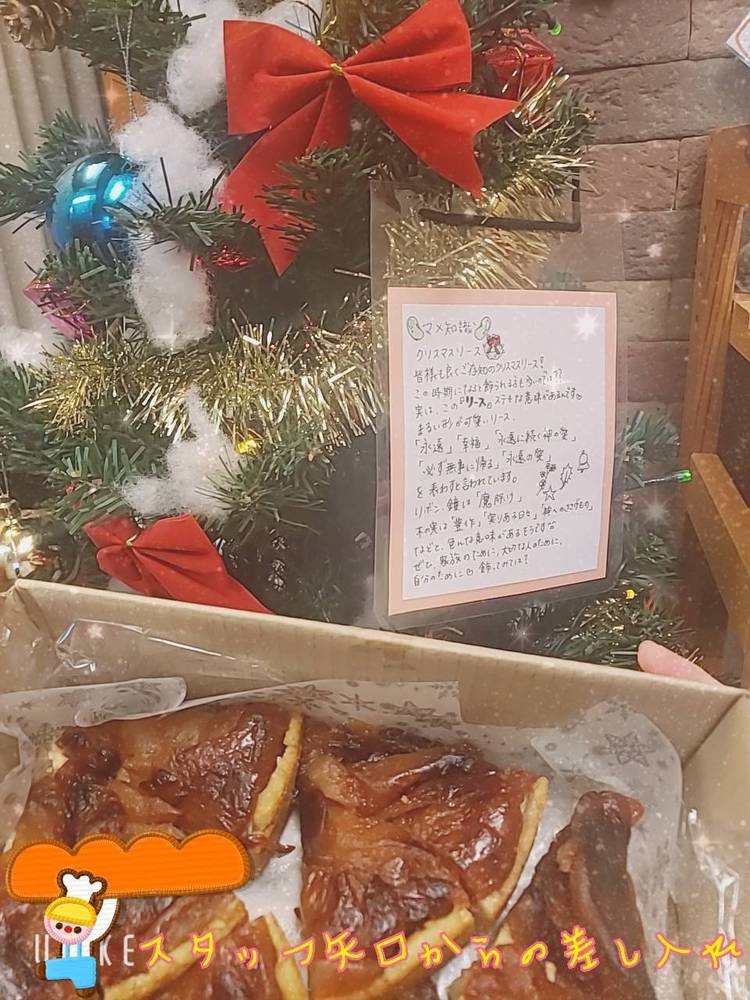 マメ知識
クリスマスリース
皆様も良くご存知のクリスマスリース!
この時期になると飾られる方も多いのでは??
実は、この『リース』ステキな意味があるんです
まるい形が可愛いリース。
「永遠」「幸福」「永遠に続く神の愛」
「必ず無事に帰る」「永遠の愛」
を表わすと言われています。
リボン、鐘は「魔除け」
木の実は「豊作」「実りある日々」「神へのささげもの」
などと、色んな意味があるそうですな
ぜひ、家族のために、大切な人のために、
自分のために 飾ってみては?
スタッフ矢口からの差し入れ